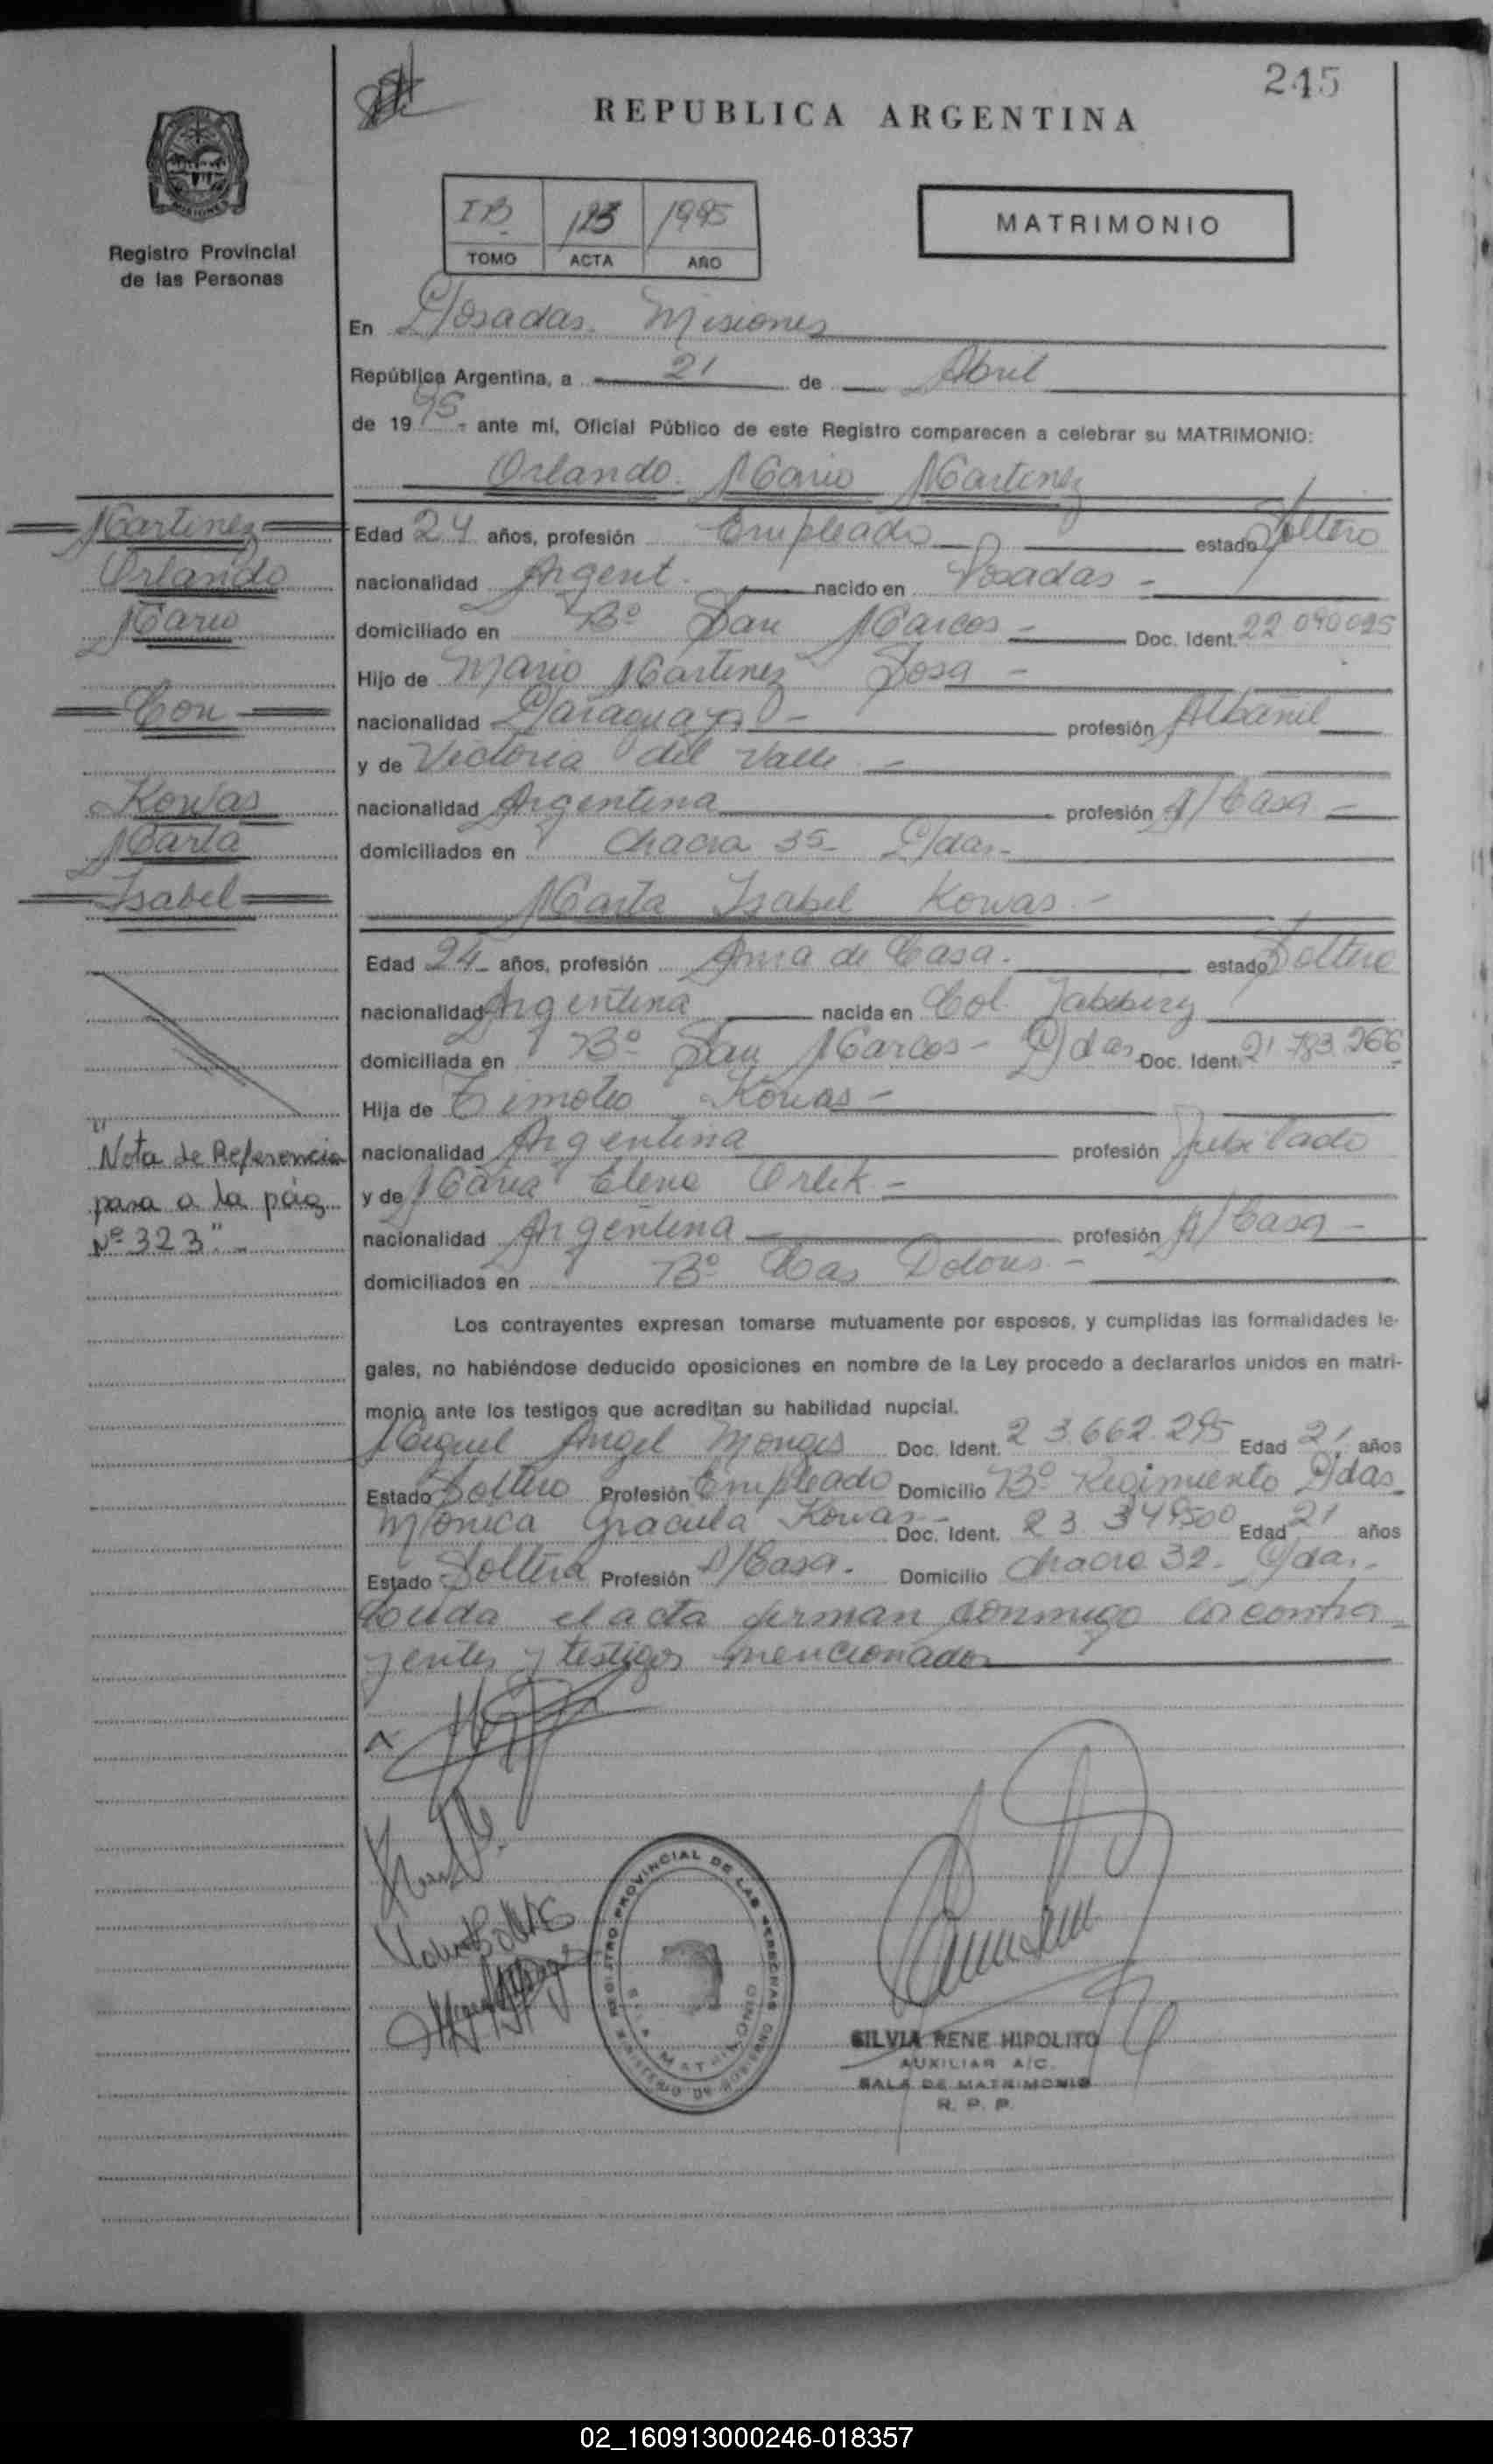 245
REPUBLICA ARGENTINA
MISIONES
Registro Provincial
de las Personas
IB 123 1995
TOMO ACTA AÑO
MATRIMONIO
En Posadas. Misiones
República Argentina, a 21 de Abril
de 1995 - ante mí, Oficial Público de este Registro comparecen a celebrar su MATRIMONIO:
Orlando Mario Martinez
Martinez
Orlando
Mario
Con
Kowas
Marta
Isabel
"Nota de Referencia
pasa a la pág
Nº 323"-
Edad 24 años, profesión Empleado estado Soltero
nacionalidad Argent. nacido en Posadas -
domiciliado en Bº San Marcos - Doc. Ident. 22 090 025
Hijo de Mario Martinez Sosa -
nacionalidad Paraguayo - profesión Albañil
y de Victoria del Valle -
nacionalidad Argentina profesión A/Casa -
domiciliados en Chacra 35 - Pdas -
Marta Isabel Kowas. -
Edad 24 - años, profesión Ama de Casa. estado Soltera
nacionalidad Argentina nacida en Col. Jabebiry
domiciliada en Bº San Marcos - Pdas Doc. Ident. 21 783 266
Hija de Timoteo Kowas -
nacionalidad Argentina profesión Jubilado
y de Maria Elena Orlik -
nacionalidad Argentina - profesión A/Casa -
domiciliados en Bº Las Dolores -
Los contrayentes expresan tomarse mutuamente por esposos, y cumplidas las formalidades le-
gales, no habiéndose deducido oposiciones en nombre de la Ley procedo a declararlos unidos en matri-
monio ante los testigos que acreditan su habilidad nupcial.
Miguel Angel Monges Doc. Ident. 23.662.295 Edad 21 años
Estado Soltero Profesión Empleado Domicilio Bº Regimiento Pdas
Monica Graciela Kowas - Doc. Ident. 23 349500 Edad 21 años
Estado Soltera Profesión A/Casa. Domicilio Chacra 32 - Pdas. -
Leida el acta firman conmigo los contra
yentes y testigos mencionados
REGISTRO PROVINCIAL DE LAS PERSONAS
SALA MATRIMONIO
MINISTERIO DE GOBIERNO
SILVIA RENE HIPOLITO
AUXILIAR A/C.
SALA DE MATRIMONIO
R. P. P.
02_160913000246-018357